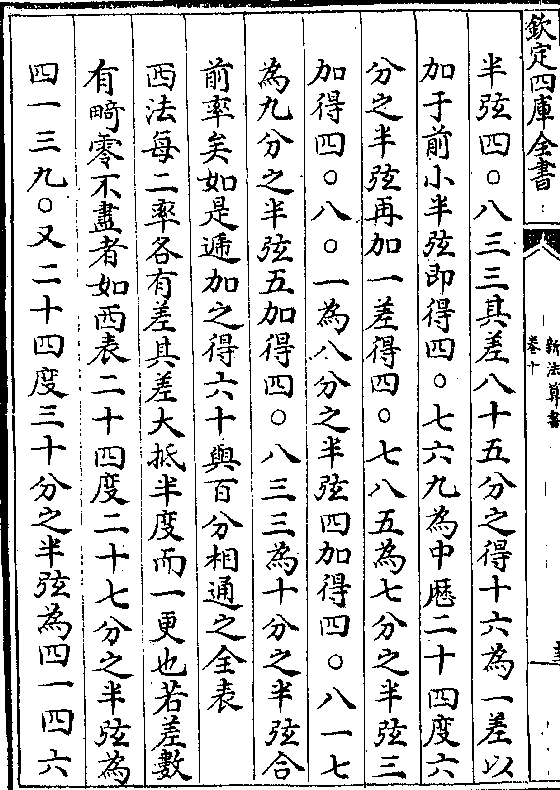 欽定四庫全書
新法算書
卷十
半弦四〇八三三其差八十五分之得十六為一差以
加于前小半弦即得四〇七六九為中曆二十四度六
分之半弦再加一差得四〇七八五為七分之半弦三
加得四〇八〇一為八分之半弦四加得四〇八一七
為九分之半弦五加得四〇八三三為十分之半弦合
前率矣如是遞加之得六十與百分相通之全表
西法每二率各有差其差大抵半度而一更也若差數
有畸零不盡者如西表二十四度二十七分之半弦為
四一三九〇又二十四度三十分之半弦為四一四六